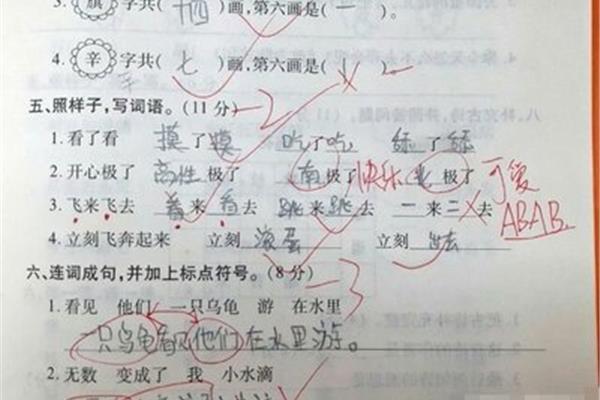 3. 旗 字共(十四)画,第六画是( 一 )。
4. 辛 字共( 七 )画,第六画是(
五、照样子,写词语。(11分) -2
1. 看了看 摸了摸 吃了吃 练了练
2. 开心极了 高性极了 南极了 快乐 北极了 可爱
3. 飞来飞去 看来看去 跳来跳去 一来二去 ABAB
4. 立刻飞奔起来 立刻 滚蛋 立刻 出去
六、连词成句,并加上标点符号。(8分) -3
1. 看见 他们 一只乌龟 游 在水里
一只乌龟看见他们在水里游。
2. 无数 变成了 我 小水滴